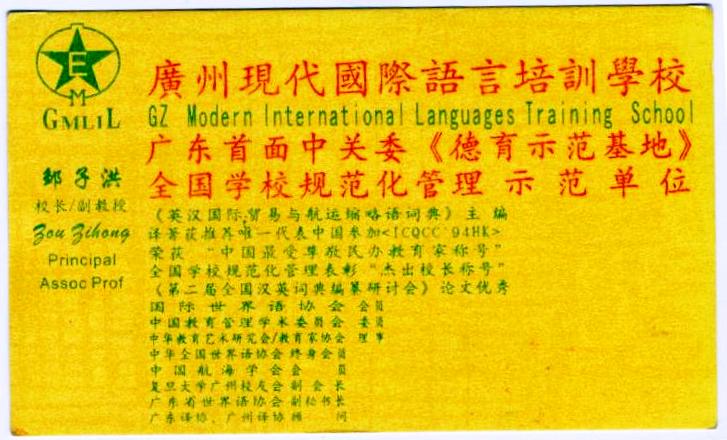 E
M
GMLIL
廣州現代國際語言培訓學校
GZ Modern International Languages Training School
广东首面中关委《德育示范基地》
全国学校规范化管理示范单位
邹子洪
校长/副教授
Zou Zihong
Principal
Assoc Prof
《英汉国际贸易与航运缩略语词典》主编
译著获推荐唯一代表中国参加<ICQCC'94HK>
荣获“中国最受尊敬民办教育家称号”
全国学校规范化管理表彰“杰出校长称号”
《第二届全国汉英词典编纂研讨会》论文优秀
国际世界语协会 会员
中国教育管理学术委员会 委员
中华教育艺术研究会/教育家协会 理事
中华全国世界语协会 终身会员
中国航海学会 会员
复旦大学广州校友会 副会长
广东省世界语协会 副秘书长
广东译协、广州译协 顾问